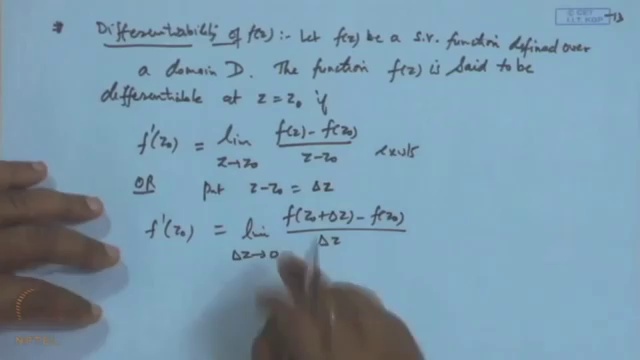 * Differentiability of f(z) :- Let f(z) be a s.v. function defined over
a domain D. The function f(z) is said to be
differentiable at z = z₀ if
f'(z₀) = lim z→z₀ (f(z) - f(z₀))/(z - z₀) exists
OR put z - z₀ = Δz
f'(z₀) = lim Δz→0 (f(z₀+Δz) - f(z₀))/Δz
NPTEL